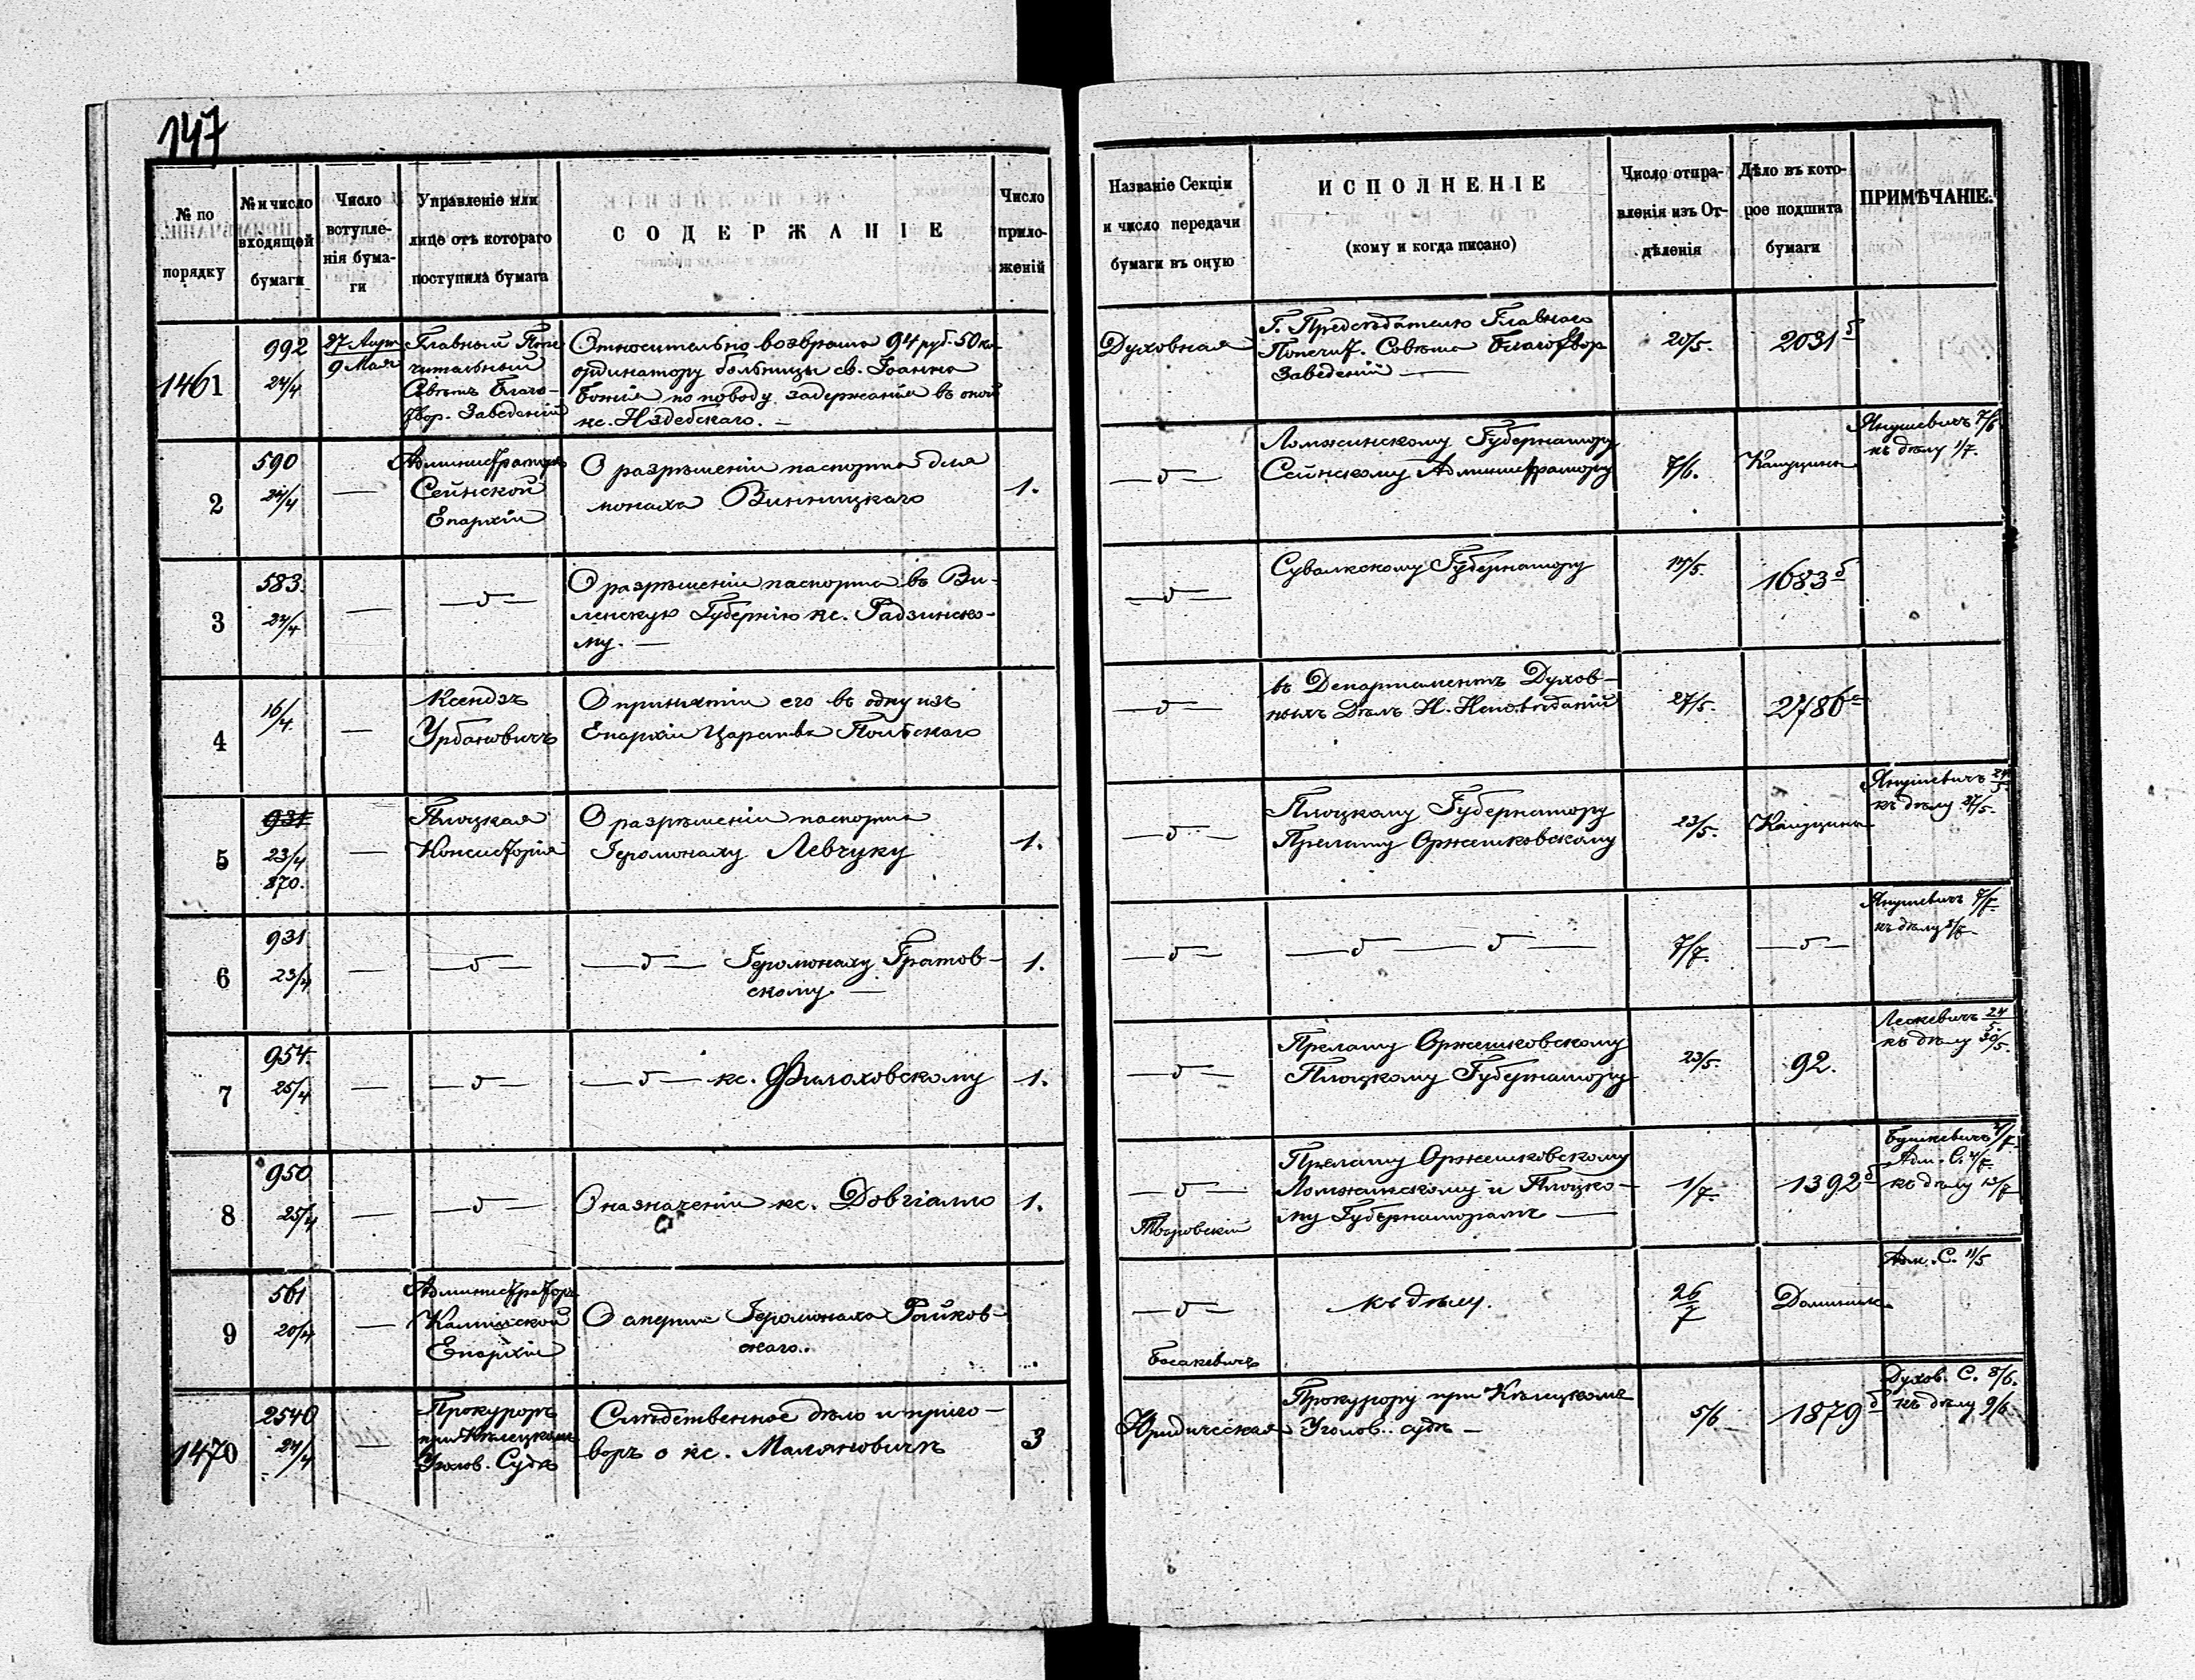 147
№ по порядку
№ и число входящей бумаги
Число вступленія бумаги
Управленіе или лице отъ котораго поступила бумага
СОДЕРЖАНІЕ
Число приложеній
Названіе Секціи и число передачи бумаги въ оную
ИСПОЛНЕНІЕ
(кому и когда писано)
Число отправленія изъ Отдѣленія
Дѣло въ которое подшита бумаги
ПРИМѢЧАНІЕ.
1461
992
24/4
27 Апрѣ
9 Мая
Главный Попе
чительный
Совѣтъ Благо-
твор. Заведеній
Относительно возврата 94 руб. 50 ко
ординатору больницы св. Іоанна
Божія по поводу задержанія въ оной
кс. Нздебскаго. —
Духовная
Г. Предсѣдателю Главнаго
Попечит. Совѣта Благотвор
Заведеній —
20/5.
2031 б
2
590
24/4
—
Администраторъ
Сейнской
Епархіи
О разрѣшеніи паспорта для
монаха Винницкаго
1.
— " —
Ломжинскому Губернатору
Сейнскому Администратору
7/6.
Капуцины
Янушевичъ 7/6
къ дѣлу 1/7.
3
583.
24/4
—
— " —
О разрѣшеніи паспорта въ Ви-
ленскую Губернію кс. Радзинско-
му. —
— " —
Сувалкскому Губернатору
14/5.
1683 б
4
16/4.
—
Ксендзъ
Урбановичъ
О принятіи его въ одну изъ
Епархіи Царства Польскаго
— " —
въ Департаментъ Духов-
ныхъ Дѣлъ И. Исповѣданій
27/5.
2786 а
5
931
23/4
870.
—
Плоцкая
Консисторія
О разрѣшеніи паспорта
Іеромонаху Левчуку
1.
— " —
Плоцкому Губернатору
Прелату Оржешковскому
23/5.
Капуцины
Янушевичъ 24/5
къ дѣлу 27/5.
6
931
23/4
—
— " —
— " — Іеромонаху Гратов-
скому. —
1.
— " —
— " — " —
7/7.
— " —
Янушевичъ 7/7.
къ дѣлу
7
954.
25/4
—
— " —
— " — кс. Филоховскому
1.
— " —
Прелату Оржешковскому
Плоцкому Губернатору
23/5.
92.
Лескевичъ 24/5
къ дѣлу 30/5.
8
950
25/4
—
— " —
О назначеніи кс. Довгіалло
1.
— " —
Прелату Оржешковскому
Ломжинскому и Плоцко-
му Губернаторамъ —
1/7.
1392 б
Адм. С.
къ дѣлу 13/7
9
561
20/4
—
Администраторъ
Калишской
Епархіи
О смерти Іеромонаха Райков-
скаго..
— " —
къ дѣлу.
26/7
Доминик.
Адм. С. 11/5
1470
2540
24/4
—
Прокуроръ
при Кѣлецкомъ
Уголов. Судѣ
Слѣдственное дѣло и приго-
воръ о кс. Маляновичѣ
3
Юридическая
Прокурору при Кѣлецкомъ
Уголов. судѣ —
5/6
1879 б
Духов. С. 8/6.
къ дѣлу 9/6